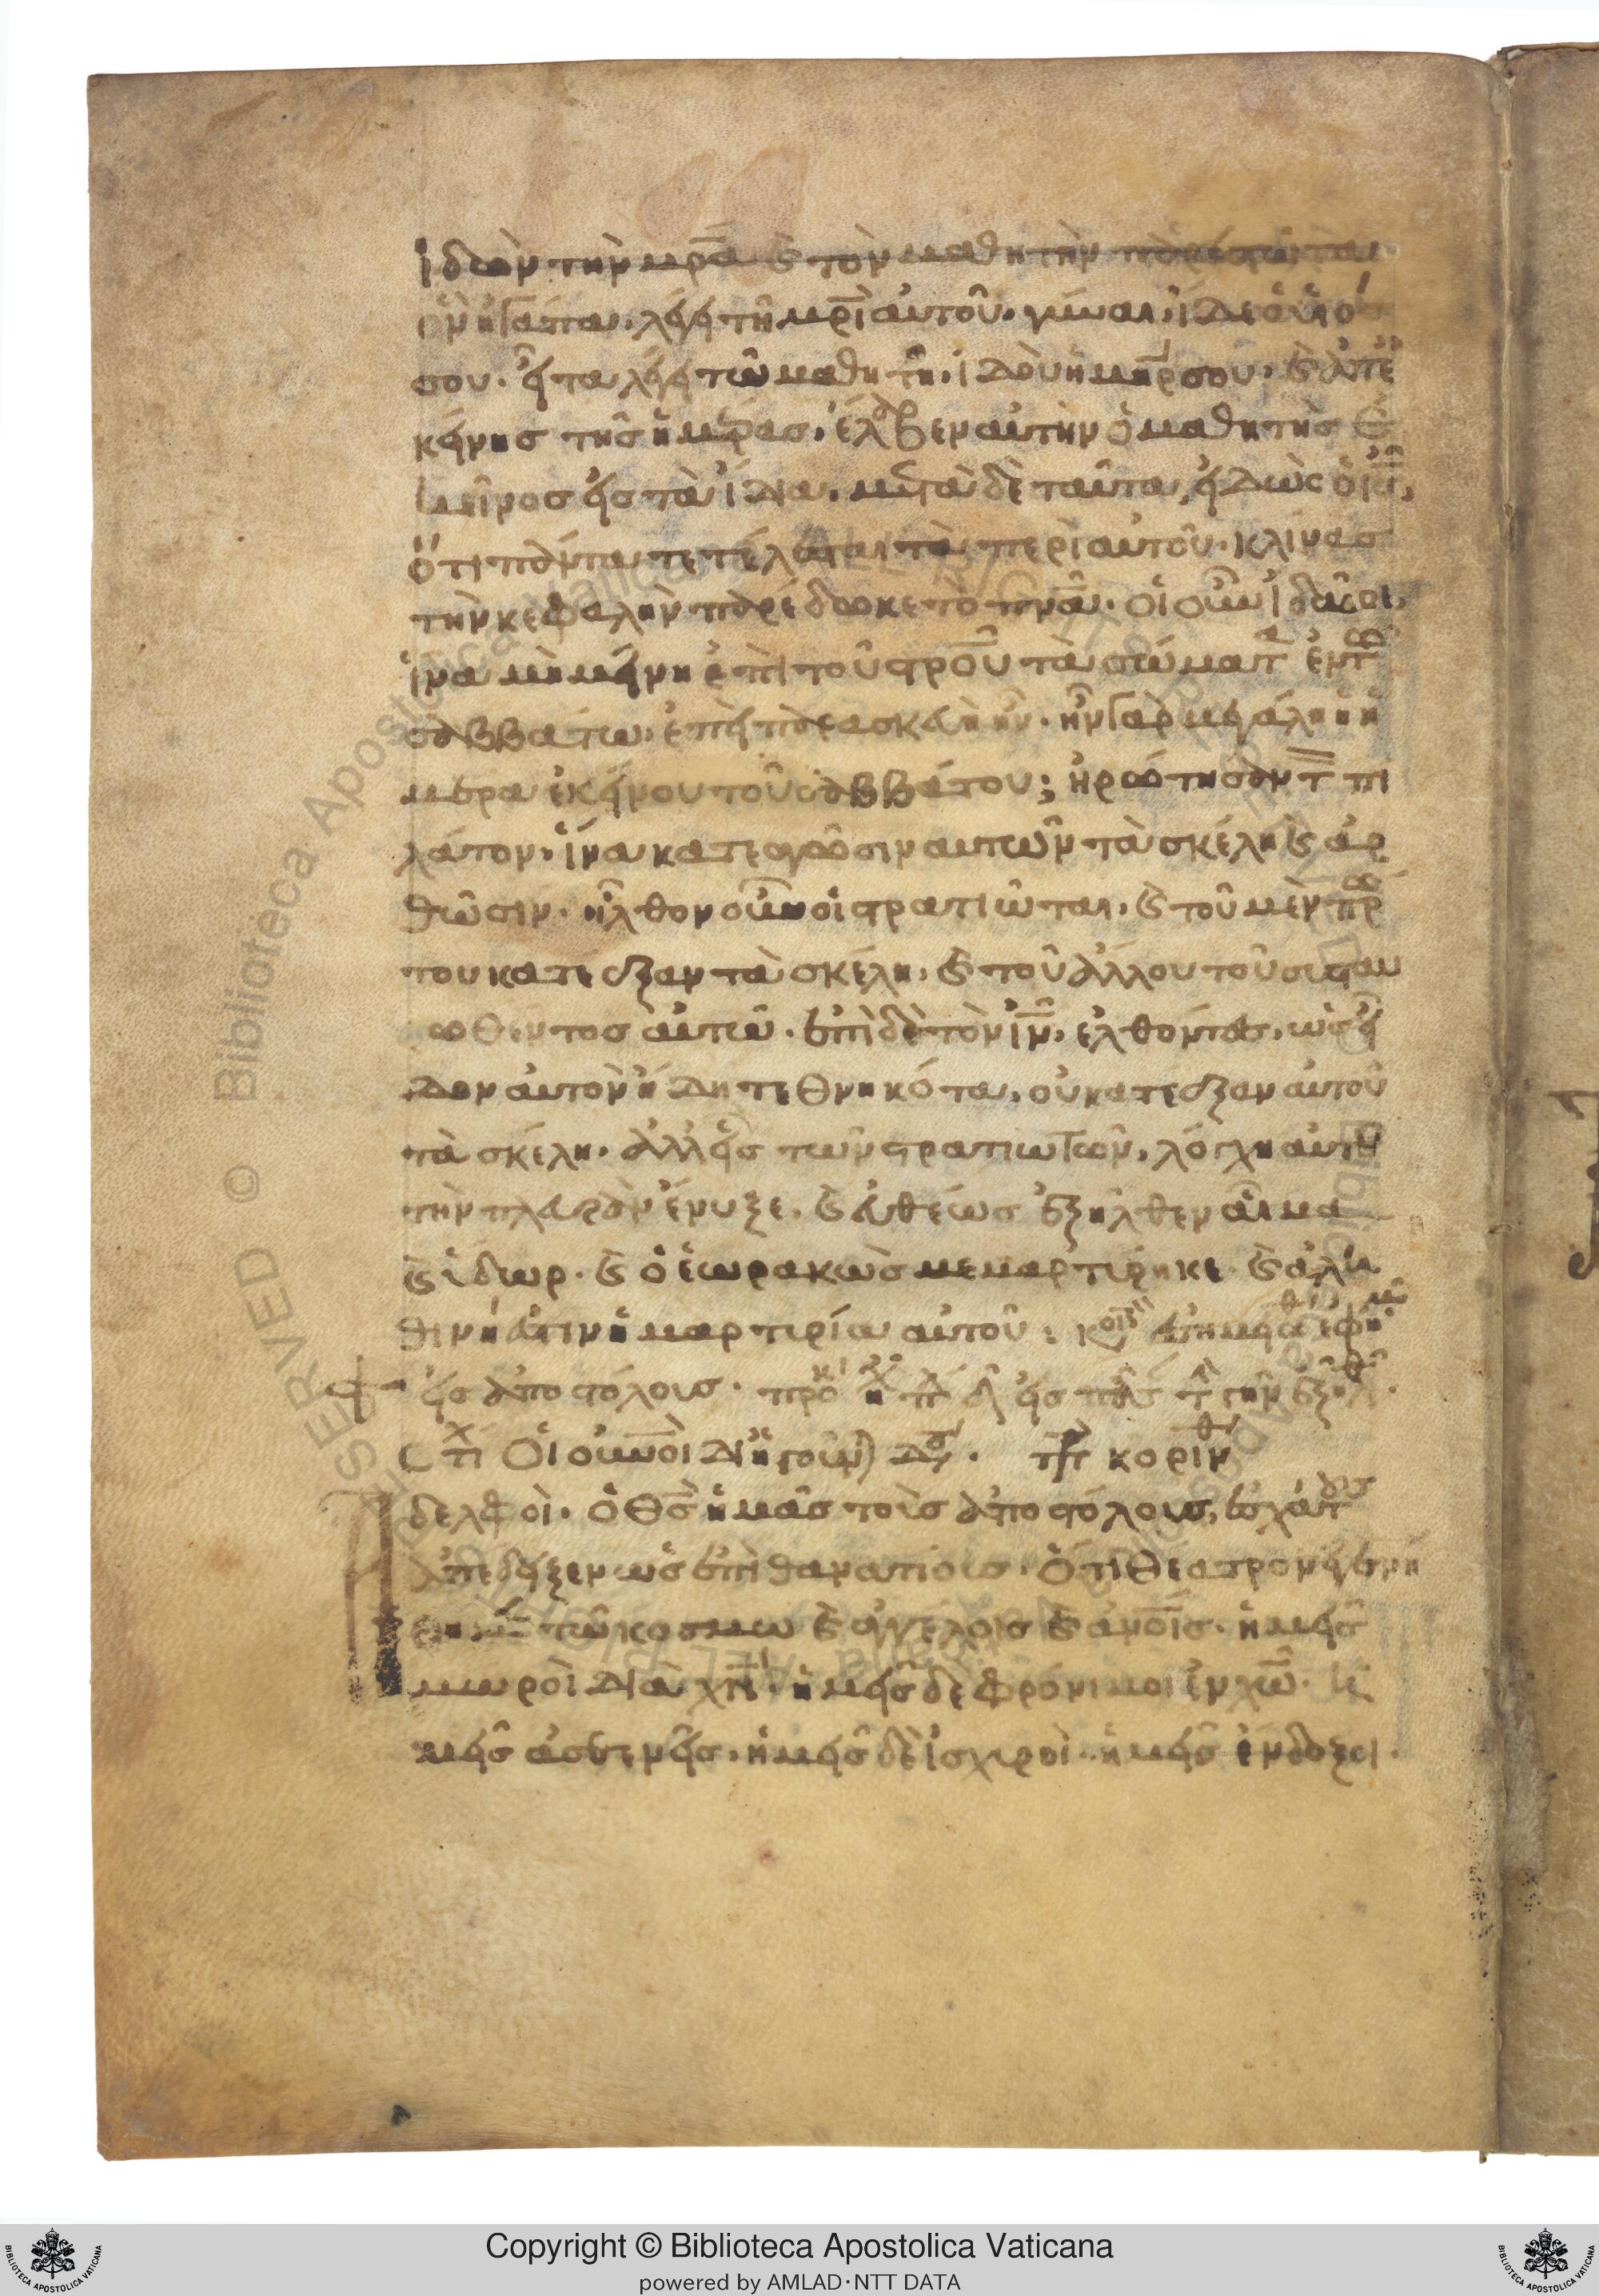 ἰδὼν τὴν μρα καὶ τὸν μαθητὴν παρεστῶτα
ὃν ἠγάπα. λέγει τῇ μρι αὐτοῦ. γύναι. ἴδε ὁ υἱός
σου. εἶτα λέγει τῶ μαθητῆ. ἰδοὺ ἡ μηρ σου. καὶ ἀπ ἐ
κείνης τῆς ἡμέρας. ἔλαβεν αὐτὴν ὁ μαθητὴς ἐ
κεῖνος εἰς τὰ ἴδια. μετὰ δὲ ταῦτα εἰδὼς ὁ ις,
ὅτι πάντα τετέλεσται τὰ περὶ αὐτοῦ. κλίνας
τὴν κεφαλὴν παρέδωκε τὸ πνα. οἱ οὖν ἰδαῖοι,
ἵνα μὴ μείνη ἐπὶ τοῦ στρου τὰ σώματ ἐν τ
σαββάτω. ἐπεὶ παρασκευὴ ἦν. ἦν γὰρ μεγάλη ἡ ἡ
μέρα ἐκείνου τοῦ σαββάτου; ἠρώτησαν τ πι
λάτον. ἵνα κατεαγῶσιν αὐτῶν τὰ σκέλη καὶ ἀρ
θῶσιν. ἦλθον οὖν οἱ στρατιῶται. καὶ τοῦ μὲν πρ
του κατέαξαν τὰ σκέλη. καὶ τοῦ ἄλλου τοῦ συσταυ
ρωθέντος αὐτῶ. ἐπὶ δὲ τὸν ιν, ἐλθόντες. ὡς εἶ
δον αὐτὸν ἤδη τεθνηκότα. οὐ κατέαξαν αὐτοῦ
τὰ σκέλη. ἀλλ εἷς τῶν στρατιωτῶν. λόγχη αὐτοῦ
τὴν πλευρὰν ἔνυξε. καὶ εὐθέως ἐξῆλθεν αἷμα
καὶ ὕδωρ. καὶ ὁ ἑωρακὼς μεμαρτύρηκε. καὶ ἀλη
θινή ἐστιν ἡ μαρτυρία αὐτοῦ;
εἰς ἀποστόλους. εἰς πᾶς τ γῆν ἐξῆλθ.
στι Οἱ ουνοι διηγοῦν κορινθ
δελφοὶ. ὁ θς ἡμᾶς τοὺς ἀποστόλους, ἐσχάτους
ἀπέδειξεν ὡς ἐπιθανατίους. ὅτι θέατρον ἐγενή
θημεν τῶ κόσμω καὶ ἀγγέλοις καὶ ανοις. ἡμεῖς
μωροὶ διὰ χν. ὑμεῖς δὲ φρόνιμοι ἐν χω.
μεῖς ἀσθενεῖς. ὑμεῖς δὲ ἰσχυροὶ. ὑμεῖς ἔνδοξοι.
Copyright © Biblioteca Apostolica Vaticana
powered by AMLAD·NTT DATA